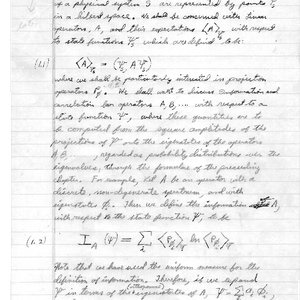 of a physical system S are represented by points Ψ
in a hilbert space. We shall be concerned with linear
operators, A, and their expectations ⟨A⟩_Ψ with respect
to state functions Ψ, which are defined to be:
(1.1) ⟨A⟩_Ψ = (Ψ, A Ψ)
where we shall be particularly interested in projection
operators. We shall want to discuss information and
correlation for operators A, B, ... with respect to a
state function Ψ, where these quantities are to
be computed from the square amplitudes of the
projections of Ψ onto the eigenstates of the operators
A, B, regarded as probability distributions over the
eigenvalues, through the formulas of the preceding
chapter. For example, let A be an operator with a
discrete, non-degenerate spectrum, and with
eigenstates Φ_i. Then we define the information
with respect to the state function Ψ, to be
(1.2) I_A (Ψ) = Σ_i ⟨P_i⟩_Ψ ln ⟨P_i⟩_Ψ
Note that we have used the uniform measure for the
definition of information. Therefore, if we expand
Ψ in terms of the eigenstates of A, Ψ = Σ a_i Φ_i,